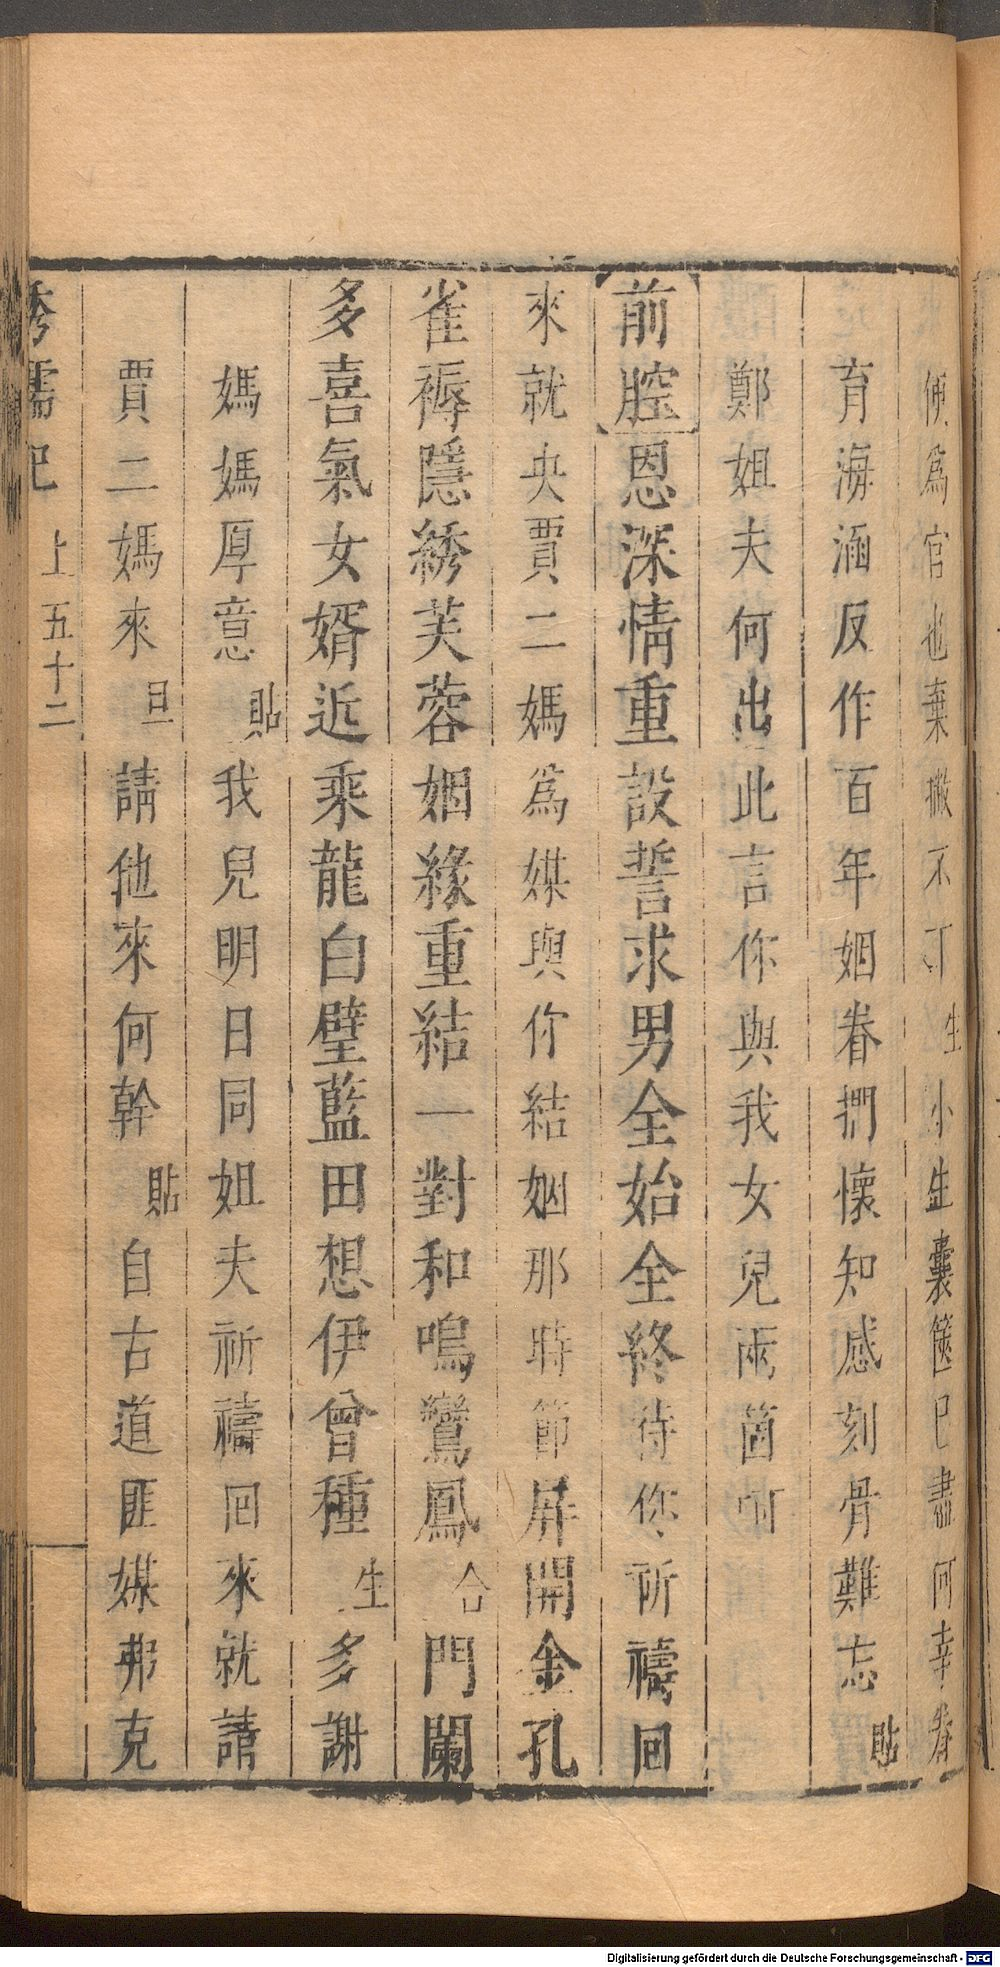 倘爲官也棄撇不丁生小生囊篋已盡何幸眷
育海涵反作百年姻眷捫懷知感刻骨難忘貼
鄭姐夫何出此言你與我女兒兩箇呵
前腔恩深情重設誓求男全始全終待你祈禱回
來就央賈二媽爲媒與你結姻那時節屏開金孔
雀褥隱綉芙蓉姻緣重結一對和鳴鸞鳳合門闌
多喜氣女婿近乘龍白璧藍田想伊曾種生多謝
媽媽厚意貼我兒明日同姐夫祈禱回來就請
賈二媽來旦請他來何幹貼自古道匪媒弗克
繡襦記 上 五十二
Digitalisierung gefördert durch die Deutsche Forschungsgemeinschaft - DFG